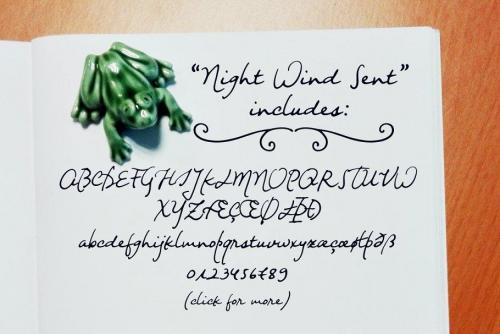 “Night Wind Sent”
includes:
ABCDEFGHIJKLMNOPQRSTUVW
XYZÆÇŒØŁÞÐ
abcdefghijklmnopqrstuvwxyzæçœøłþðß
0123456789
(click for more)